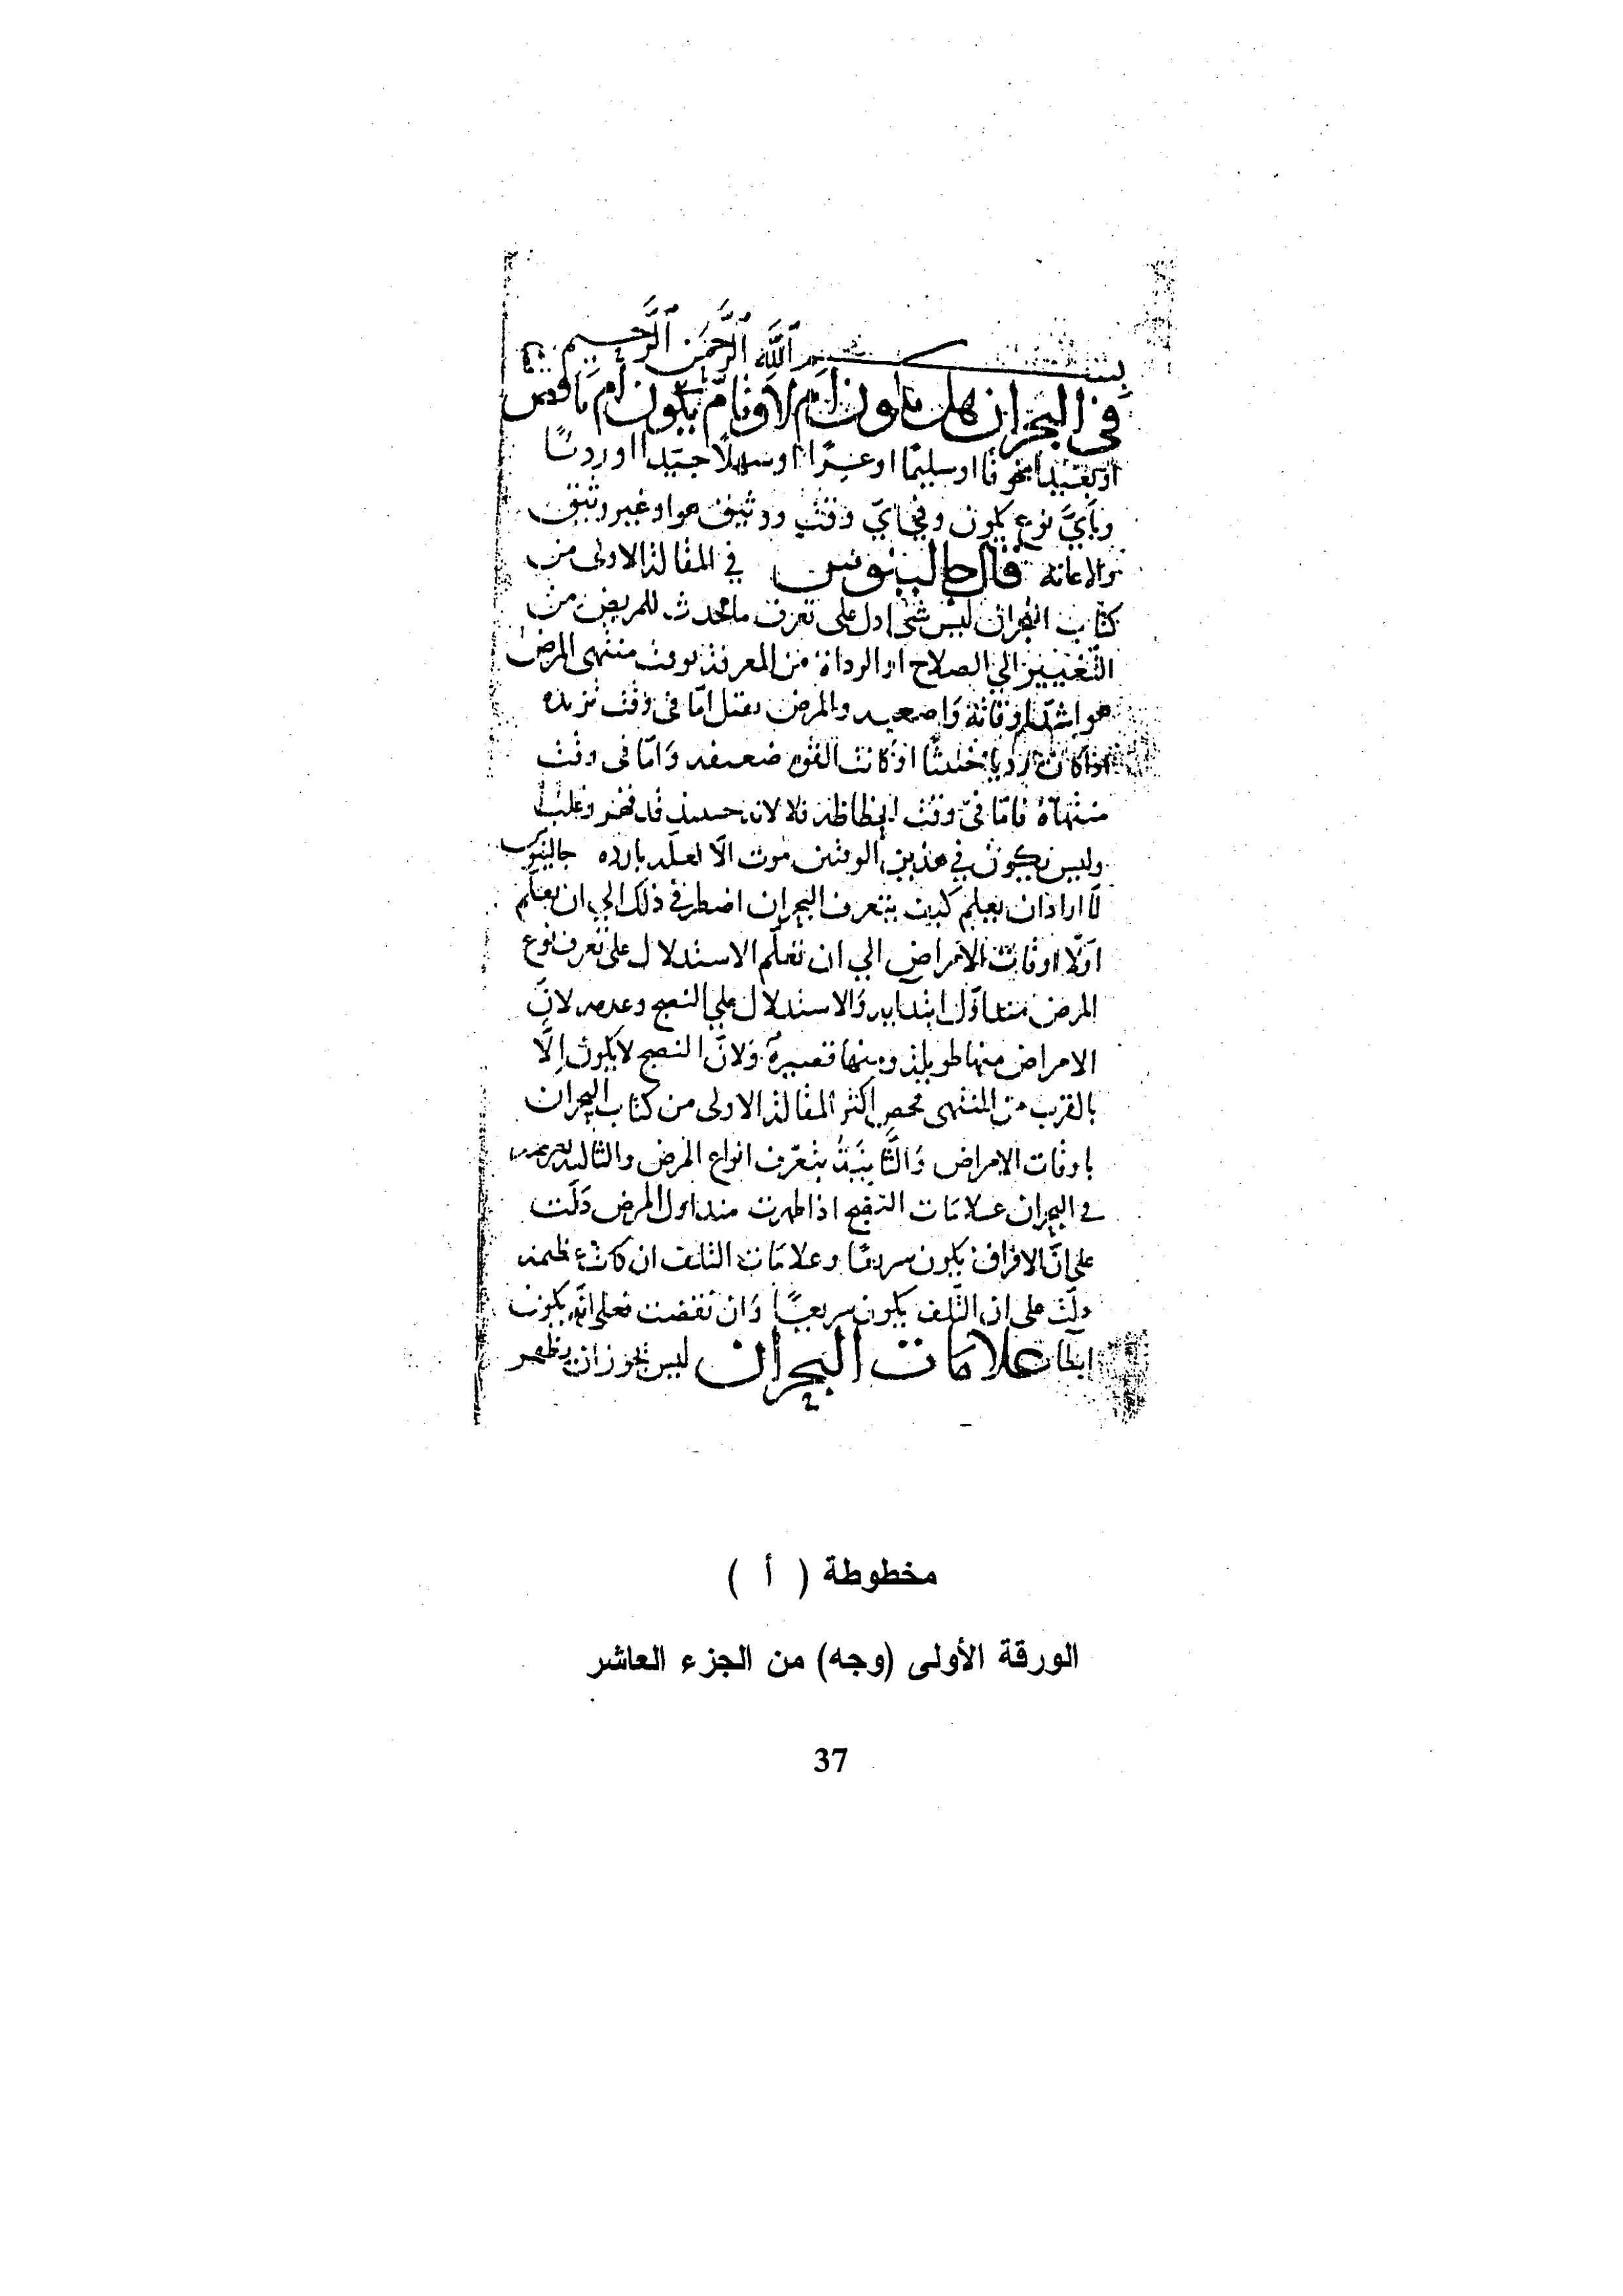 بسم الله الرحمن الرحيم
في البحران هل يكون أم لا وتام يكون أم ناقص
او سليما او عسرا او سهلا جيدا او رديا
وبأي نوع يكون وفي اي وقت ووثيق هو او غير وثيق
والاعانة قال جالينوس في المقالة الاولى من
كتاب البحران ليس شي ادل على تعرف ما يحدث للمريض من
التغيير الي الصلاح او الرداة من المعرفة بوقت منتهى المرض
هو اشد اوقاته واصعبه والمرض يقتل امّا في وقت تزيده
اذا كان رديا خبيثا او كانت القوة ضعيفه وَامّا في وقت
منتهاه فامّا في وقت انحطاطه فلا لانه حينيذ قد قهر وغلب
وليس يكون في هذين الوقتين موت الّا لعله بارده جالينوس
لمّا اراد ان يعلم كيف يتعرف البحران اضطر في ذلك الي ان يعلم
اوّلا اوقات الامراض الي ان تعلّم الاستدلال على تعرف نوع
المرض منذ اوّل ابتدايه وَالاستدلال علي النضج وعدمه لانّ
الامراض منها طويلة ومنها قصيرة وَلانّ النضج لا يكون اِلَّا
بالقرب من المنتهى فحص اكثر المقالة الاولى من كتاب البحران
باوقات الامراض وَالثَّانِيَةُ بتعرّف انواع المرض والثالثة
في البحران علامَات النضج اذا ظهرت منذ اول المرض دَلّت
على انّ الافراق يكون سريعًا وعلامَات التلف ان كانت عظيمه
دلّت على ان التّلف يكون سريعًا وَان نقصت فعلى انّه يكون
ابطا علامَات البحران ليس يجوز ان يظهر
مخطوطة ( أ )
الورقة الأولى (وجه) من الجزء العاشر
37